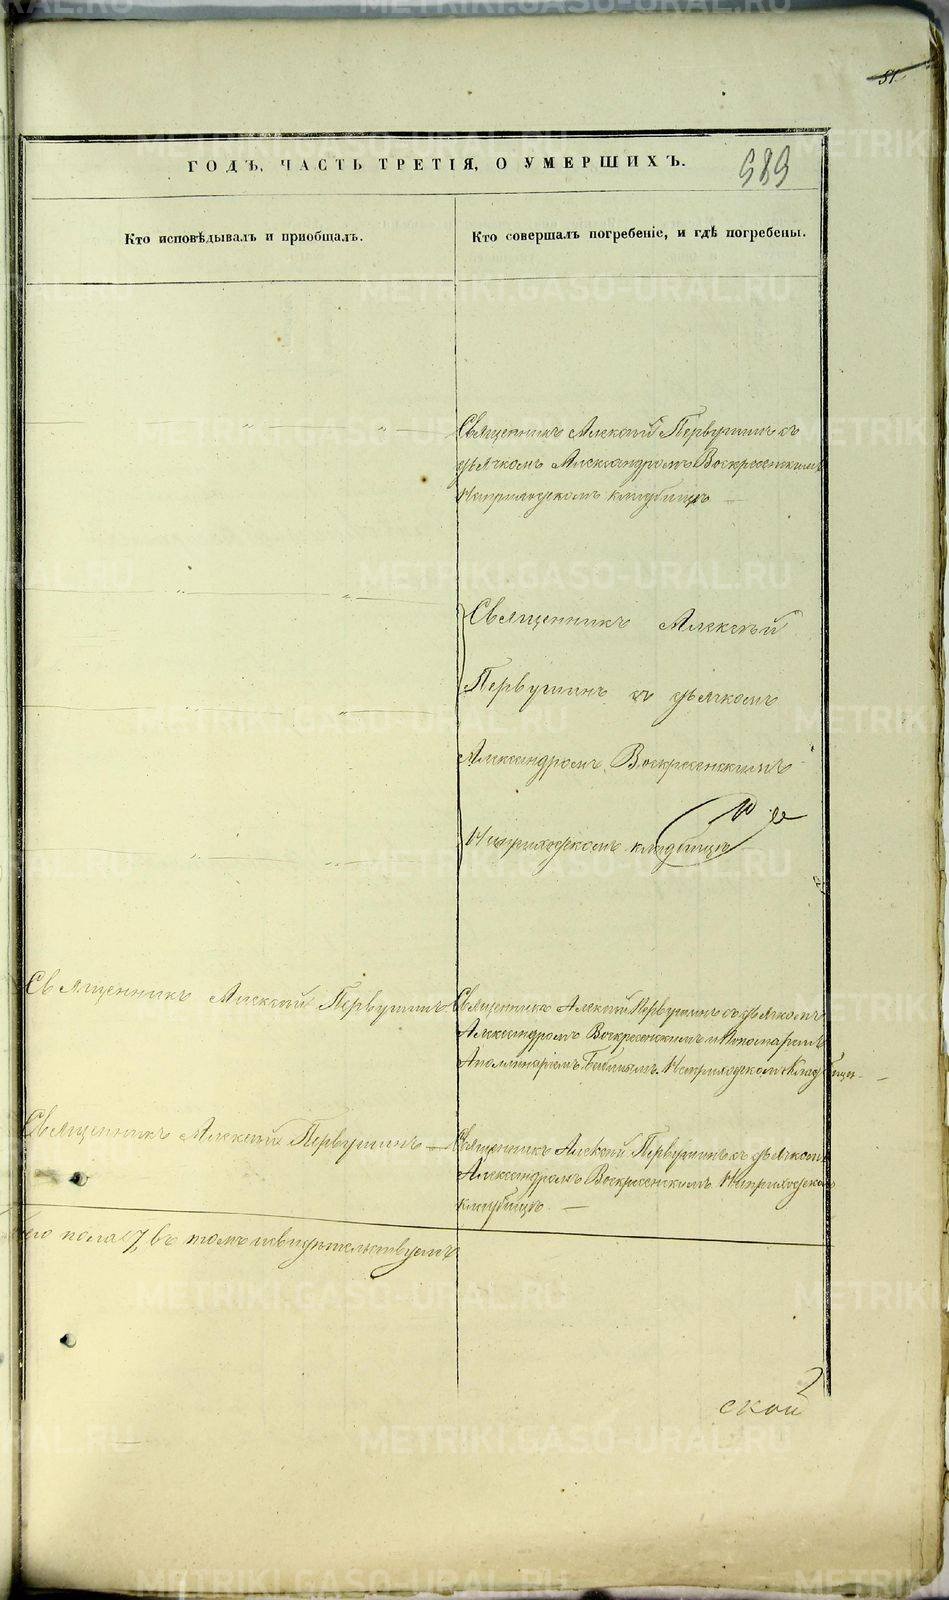 51
ГОДЪ, ЧАСТЬ ТРЕТІЯ, О УМЕРШИХЪ.
989
Кто исповѣдывалъ и приобщалъ.
Кто совершалъ погребеніе, и гдѣ погребены.
Священникъ Алексѣй Первушинъ съ
дьячкомъ Александромъ Воскресенскимъ
На приходскомъ кладбищѣ
Священникъ Алексѣй
Первушинъ съ дьячкомъ
Александромъ Воскресенскимъ
На приходскомъ кладбищѣ
Священникъ Алексѣй Первушинъ
Священникъ Алексѣй Первушинъ съ дьячкомъ
Александромъ Воскресенскимъ и Пономаремъ
Аполлинаріемъ На приходскомъ Кладбищѣ
Священникъ Алексѣй Первушинъ
Священникъ Алексѣй Первушинъ съ дьячкомъ
Александромъ Воскресенскимъ На приходскомъ
кладбищѣ
пола 17, въ томъ свидѣтельствуемъ
ской
METRIKI.GASO-URAL.RU